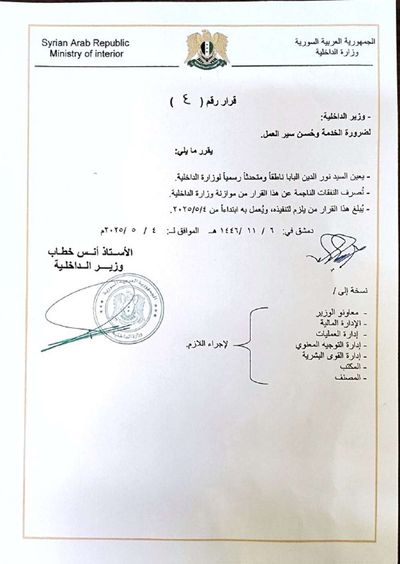 الجمهورية العربية السورية
وزارة الداخلية
Syrian Arab Republic
Ministry of interior
قرار رقم ( ٤ )
- وزير الداخلية:
لضرورة الخدمة وحُسن سير العمل.
يقرر ما يلي:
- يعين السيد نور الدين البابا ناطقاً ومتحدثاً رسمياً لوزارة الداخلية.
- تُصرف النفقات الناجمة عن هذا القرار من موازنة وزارة الداخلية.
- يُبلغ هذا القرار من يلزم لتنفيذه، ويُعمل به ابتداءاً من ٢٠٢٥/٥/٤.
دمشق في: ٦ / ١١ / ١٤٤٦ هـ الموافق لـ: ٤ / ٥ / ٢٠٢٥م
الأستاذ أنس خطاب
وزير الداخلية
نسخة إلى /
- معاونو الوزير
- الإدارة المالية
- إدارة العمليات
- إدارة التوجيه المعنوي
- إدارة القوى البشرية
- المكتب
- المصنف
لإجراء اللازم.